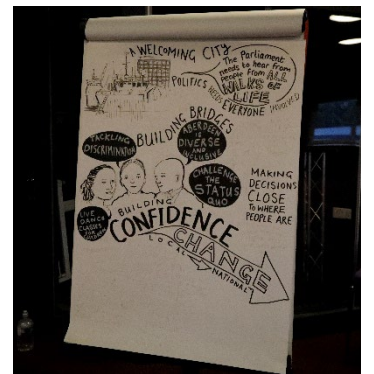 A WELCOMING CITY
The Parliament
needs to hear from
people from ALL
WALKS OF
LIFE
POLITICS
NEEDS
EVERYONE
INVOLVED
BUILDING BRIDGES
TACKLING
DISCRIMINATION
ABERDEEN
IS
DIVERSE
AND
INCLUSIVE
CHALLENGE
THE
STATUS
QUO
MAKING
DECISIONS
CLOSE
TO WHERE
PEOPLE ARE
LIVE
DANCE
CLASSES
FOR
BUILDING
CONFIDENCE
CHANGE
LOCAL
NATIONAL